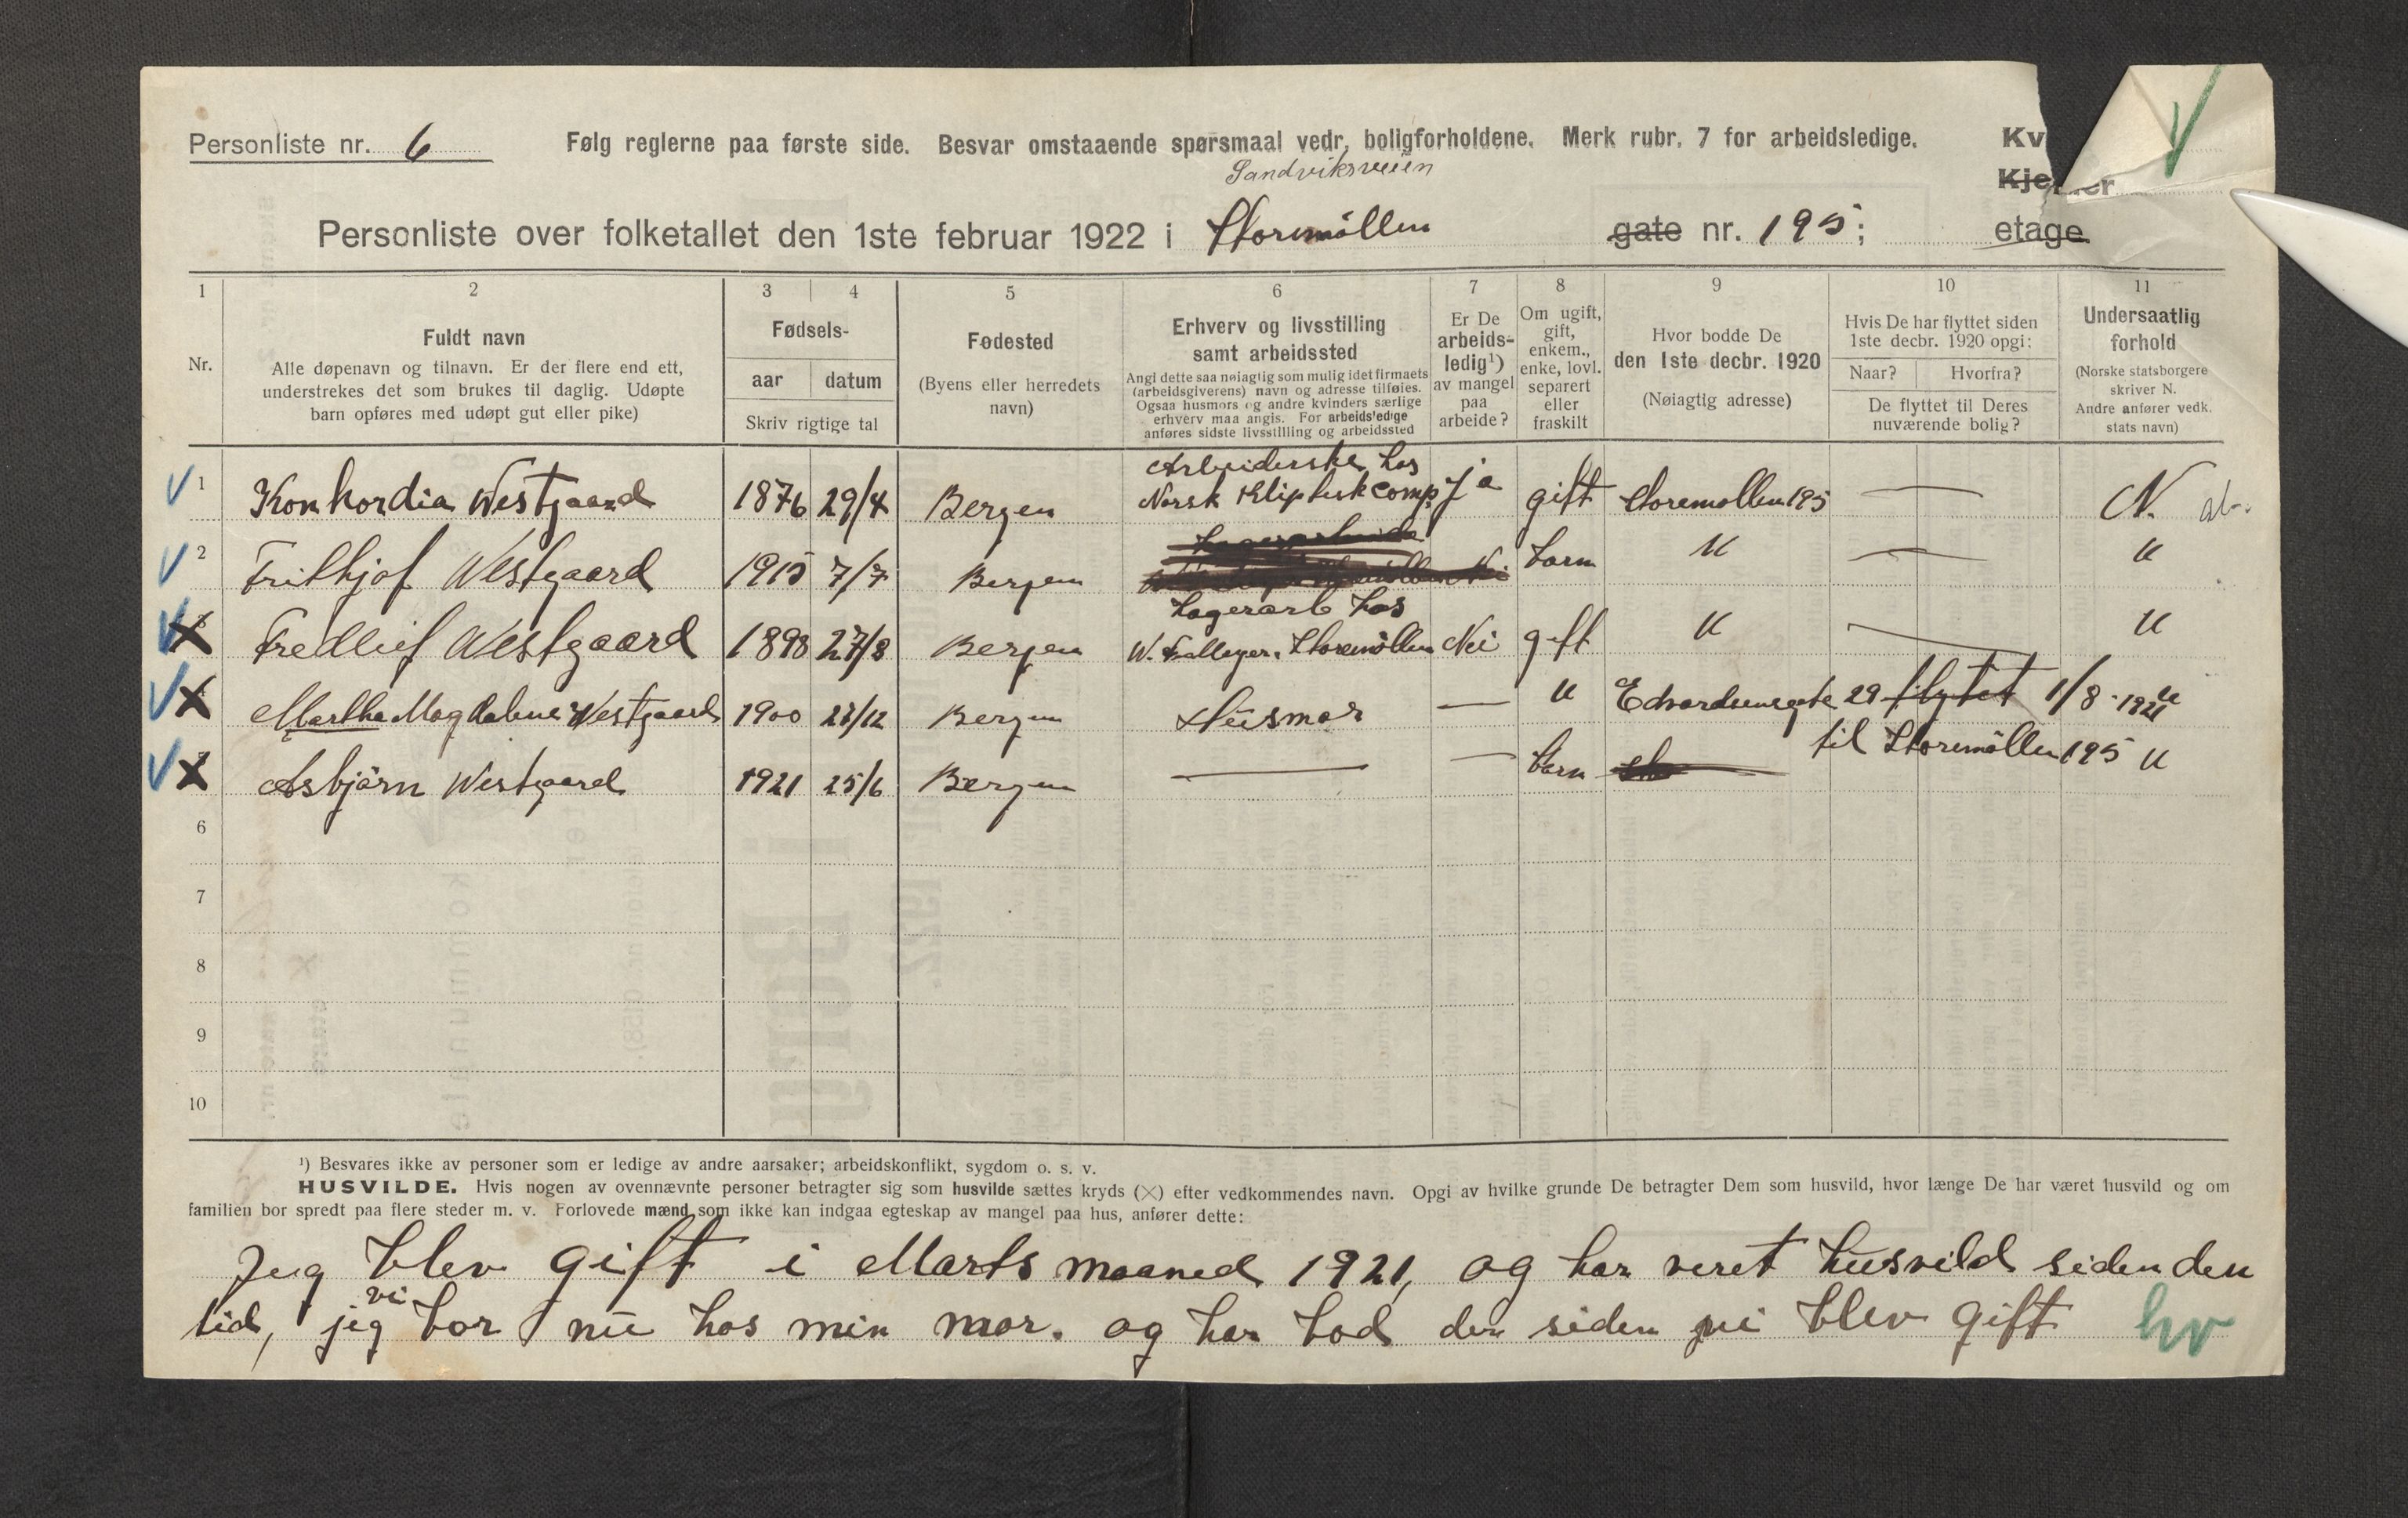 Personliste nr. 6
Følg reglerne paa første side. Besvar omstaaende spørsmaal vedr. boligforholdene. Merk rubr. 7 for arbeidsledige.
Kv
Kjelder
Sandviksveien
Personliste over folketallet den 1ste februar 1922 i Storemöllen gate nr. 195; etage
1 2 3 4 5 6 7 8 9 10 11
Nr.
Fuldt navn
Alle døpenavn og tilnavn. Er der flere end ett,
understrekes det som brukes til daglig. Udøpte
barn opføres med udøpt gut eller pike)
Fødsels-
aar datum
Skriv rigtige tal
Fødested
(Byens eller herredets
navn)
Erhverv og livsstilling
samt arbeidssted
Angi dette saa nøiagtig som mulig idet firmaets
(arbeidsgiverens) navn og adresse tilføies.
Ogsaa husmors og andre kvinders særlige
erhverv maa angis. For arbeidsledige
anføres sidste livsstilling og arbeidssted
Er De
arbeids-
ledig¹)
av mangel
paa
arbeide?
Om ugift,
gift,
enkem.,
enke, lovl.
separert
eller
fraskilt
Hvor bodde De
den 1ste decbr. 1920
(Nøiagtig adresse)
Hvis De har flyttet siden
1ste decbr. 1920 opgi:
Naar? Hvorfra?
De flyttet til Deres
nuværende bolig?
Undersaatlig
forhold
(Norske statsborgere
skriver N.
Andre anfører vedk.
stats navn)
Arbeiderske hos
1 Konkordia Westgaard 1876 29/4 Bergen Norsk Klipfisk Comp. Ja gift Storemollen 195 — N.
2 Frithjof Westgaard 1915 7/7 Bergen barn " — "
Lagerarb hos
Fredlief Westgaard 1898 27/8 Bergen W. Falleyer. Storemöllen Nei gift " — "
Martha Magdalene Westgaard 1900 27/12 Bergen Husmor — " Edvardsensgate 29 flytet 1/8-1921 "
til Storemöllen 195
Asbjörn Westgaard 1921 25/6 Bergen — — barn "
6
7
8
9
10
¹) Besvares ikke av personer som er ledige av andre aarsaker; arbeidskonflikt, sygdom o. s. v.
HUSVILDE. Hvis nogen av ovennævnte personer betragter sig som husvilde sættes kryds (×) efter vedkommendes navn. Opgi av hvilke grunde De betragter Dem som husvild, hvor længe De har været husvild og om
familien bor spredt paa flere steder m. v. Forlovede mænd som ikke kan indgaa egteskap av mangel paa hus, anfører dette:
Jeg blev gift i Marts maaned 1921, og har veret husvild siden den
vi
tid, jeg bor nu hos min mor. og har bod der siden vi blev gift hv